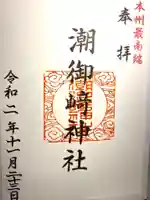 本州最南端
奉拝
潮御崎神社
令和二年十一月二十三日